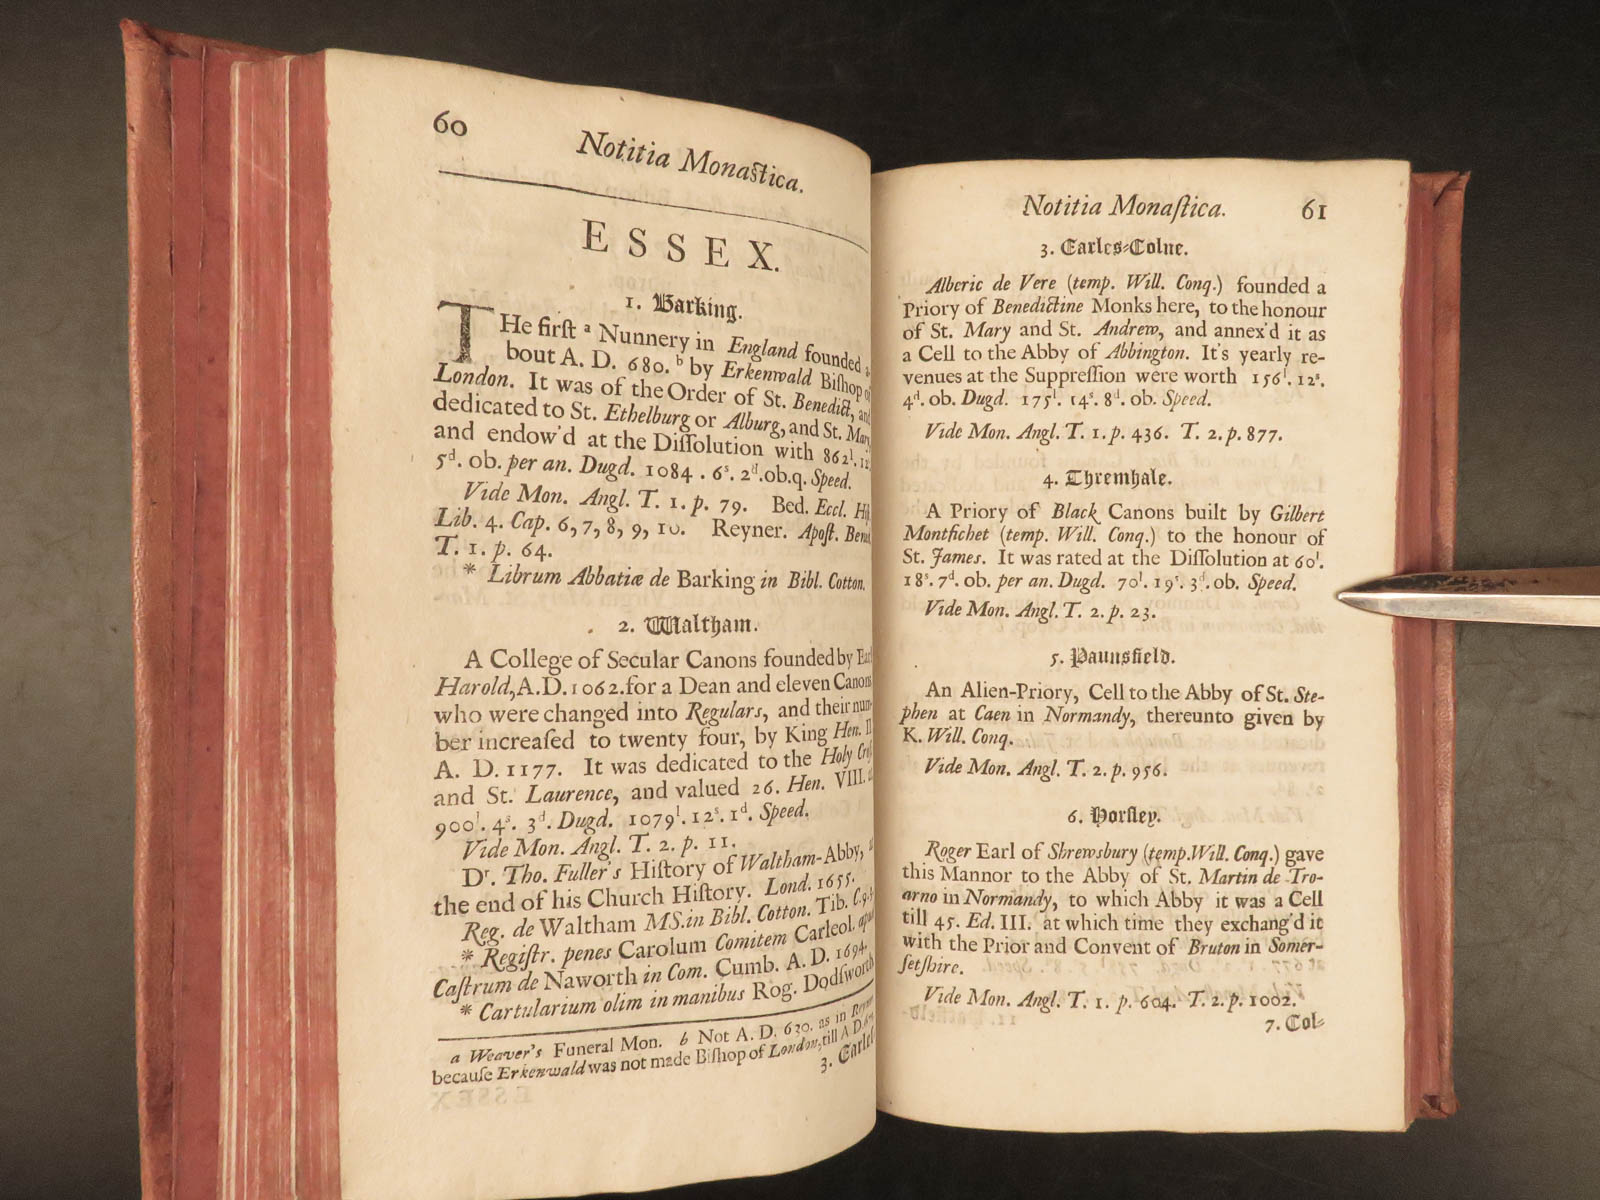 60
Notitia Monastica.
ESSEX.
1. Barking.
THe firſt a Nunnery in England founded a-
bout A. D. 680. b by Erkenwald Biſhop of
London. It was of the Order of St. Benedict, and
dedicated to St. Ethelburg or Alburg, and St. Mary
and endow'd at the Diſſolution with 862l. 12s.
5d. ob. per an. Dugd. 1084. 6s. 2d. ob. q. Speed.
Vide Mon. Angl. T. 1. p. 79. Bed. Eccl. Hiſt.
Lib. 4. Cap. 6, 7, 8, 9, 10. Reyner. Apoſt. Bened.
T. 1. p. 64.
* Librum Abbatiæ de Barking in Bibl. Cotton.
2. Waltham.
A College of Secular Canons founded by Earl
Harold, A.D. 1062. for a Dean and eleven Canons
who were changed into Regulars, and their num-
ber increaſed to twenty four, by King Hen. II.
A. D. 1177. It was dedicated to the Holy Croſs
and St. Laurence, and valued 26. Hen. VIII. at
900l. 4s. 3d. Dugd. 1079l. 12s. 1d. Speed.
Vide Mon. Angl. T. 2. p. 11.
Dr. Tho. Fuller's Hiſtory of Waltham-Abby, at
the end of his Church Hiſtory. Lond. 1655.
Reg. de Waltham MS. in Bibl. Cotton. Tib. C. 9.
* Regiſtr. penes Carolum Comitem Carleol. apud
Caſtrum de Naworth in Com. Cumb. A. D. 1694.
* Cartularium olim in manibus Rog. Dodſworth
a Weaver's Funeral Mon. b Not A. D. 630. as in Reyner
becauſe Erkenwald was not made Biſhop of London, till A D. 675.
3. Earles-
Notitia Monaſtica. 61
3. Earles-Colne.
Alberic de Vere (temp. Will. Conq.) founded a
Priory of Benedictine Monks here, to the honour
of St. Mary and St. Andrew, and annex'd it as
a Cell to the Abby of Abbington. It's yearly re-
venues at the Suppreſſion were worth 156l. 12s.
4d. ob. Dugd. 175l. 14s. 8d. ob. Speed.
Vide Mon. Angl. T. 1. p. 436. T. 2. p. 877.
4. Thremhale.
A Priory of Black Canons built by Gilbert
Montfichet (temp. Will. Conq.) to the honour of
St. James. It was rated at the Diſſolution at 60l.
18s. 7d. ob. per an. Dugd. 70l. 19s. 3d. ob. Speed.
Vide Mon. Angl. T. 2. p. 23.
5. Paunsfield.
An Alien-Priory, Cell to the Abby of St. Ste-
phen at Caen in Normandy, thereunto given by
K. Will. Conq.
Vide Mon. Angl. T. 2. p. 956.
6. Horſley.
Roger Earl of Shrewsbury (temp. Will. Conq.) gave
this Mannor to the Abby of St. Martin de Tro-
arno in Normandy, to which Abby it was a Cell
till 45. Ed. III. at which time they exchang'd it
with the Prior and Convent of Bruton in Somer-
ſetſhire.
Vide Mon. Angl. T. 1. p. 604. T. 2. p. 1002.
7. Col-